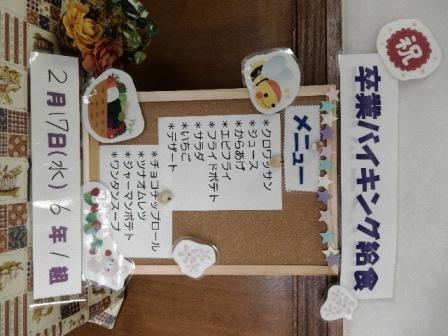 祝
卒業バイキング給食
メニュー
*クロワッサン
*ジュース
*からあげ
*エビフライ
*フライドポテト
*サラダ
*いちご
*デザート
*チョコチップロール
*ツナオムレツ
*ジャーマンポテト
*ワンタンスープ
2月17日(水) 6年1組